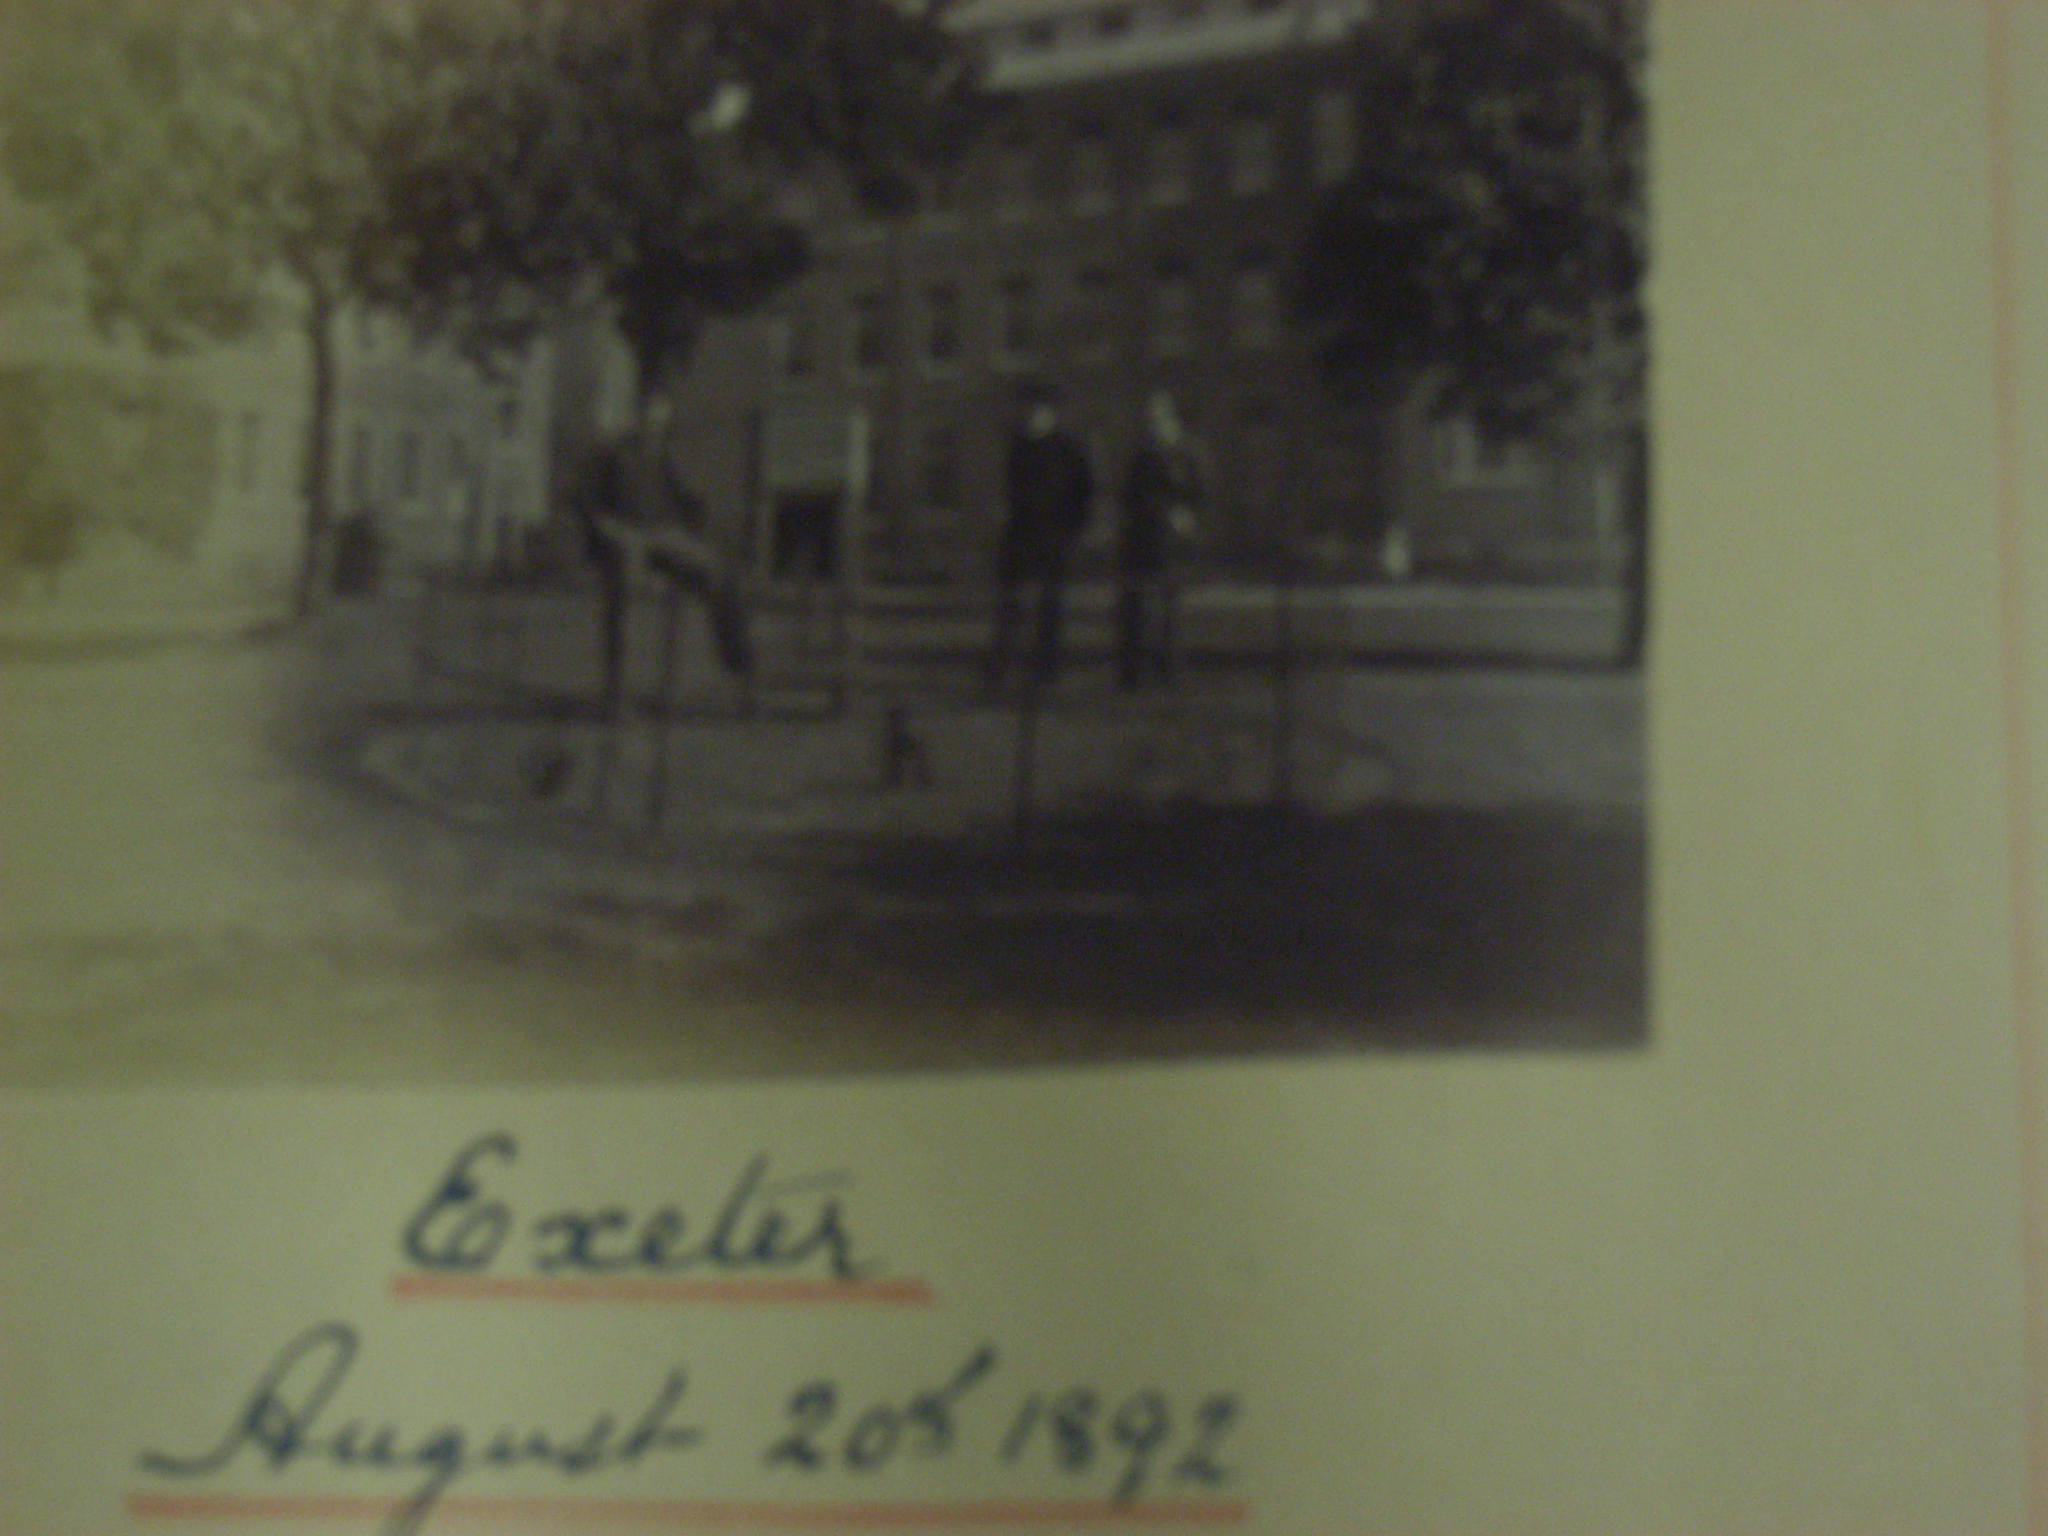 Exeter
August 20th 1892